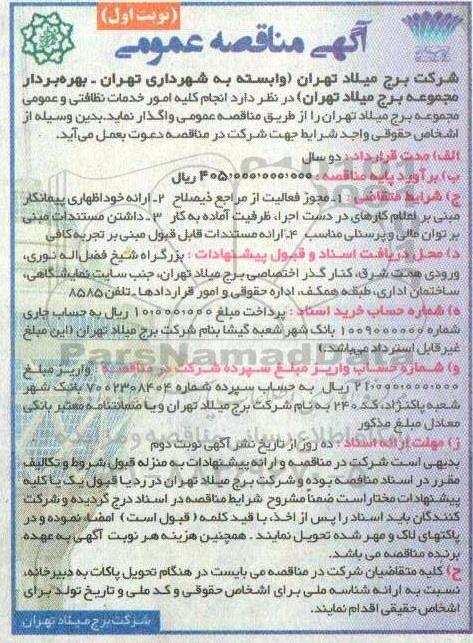 (نوبت اول)
آگهی مناقصه عمومی
شرکت برج میلاد تهران (وابسته به شهرداری تهران - بهره‌بردار
مجموعه برج میلاد تهران) در نظر دارد انجام کلیه امور خدمات نظافتی و عمومی
مجموعه برج میلاد تهران را از طریق مناقصه عمومی واگذار نماید. بدین وسیله از
اشخاص حقوقی واجد شرایط جهت شرکت در مناقصه دعوت بعمل می‌آید.
الف) مدت قرارداد : دو سال
ب) برآورد پایه مناقصه : ۴۰۵٫۰۰۰٫۰۰۰٫۰۰۰ ریال
ج) شرایط متقاضی : ۱ـ مجوز فعالیت از مراجع ذیصلاح ۲ـ ارائه خوداظهاری پیمانکار
مبنی بر اعلام کارهای در دست اجرا، ظرفیت آماده به کار ۳ـ داشتن مستندات مبنی
بر توان مالی و پرسنلی مناسب ۴ـ ارائه مستندات قابل قبول مبنی بر تجربه کافی
د) محل دریافت اسناد و قبول پیشنهادات : بزرگراه شیخ فضل‌اله نوری،
ورودی همت شرق، کنار گذر اختصاصی برج میلاد تهران، جنب سایت نمایشگاهی،
ساختمان اداری، طبقه همکف، اداره حقوقی و امور قراردادها ـ تلفن ۸۵۸۵
ه) شماره حساب خرید اسناد : پرداخت مبلغ ۱٫۰۰۰٫۰۰۰ ریال به حساب جاری
شماره ۱۰۰۹۰۰۰۰۰۰ بانک شهر شعبه گیشا بنام شرکت برج میلاد تهران (این مبلغ
غیرقابل استرداد می‌باشد.)
و) شماره حساب واریز مبلغ سپرده شرکت در مناقصه : واریز مبلغ
۲۱٫۰۰۰٫۰۰۰٫۰۰۰ ریال به حساب سپرده شماره ۷۰۰۲۳۰۸۴۰۴ بانک شهر
شعبه پاکنژاد، کد ۲۴۰ به نام شرکت برج میلاد تهران و یا ضمانتنامه معتبر بانکی
معادل مبلغ مذکور
ز) مهلت ارائه اسناد : ده روز از تاریخ نشر آگهی نوبت دوم
بدیهی است شرکت در مناقصه و ارائه پیشنهادات به منزله قبول شروط و تکالیف
مقرر در اسناد مناقصه بوده و شرکت برج میلاد تهران در رد یا قبول یک یا کلیه
پیشنهادات مختار است ضمناً مشروح شرایط مناقصه در اسناد درج گردیده و شرکت
کنندگان باید اسناد را پس از اخذ، با قید کلمه (قبول است) امضاء نموده و در
پاکتهای لاک و مهر شده تحویل نمایند . همچنین هزینه هر نوبت آگهی به عهده
برنده مناقصه می باشد.
ح) کلیه متقاضیان شرکت در مناقصه می بایست در هنگام تحویل پاکات به دبیرخانه،
نسبت به ارائه شناسه ملی برای اشخاص حقوقی و کد ملی و تاریخ تولد برای
اشخاص حقیقی اقدام نمایند.
شرکت برج میلاد تهران
ParsNamadData